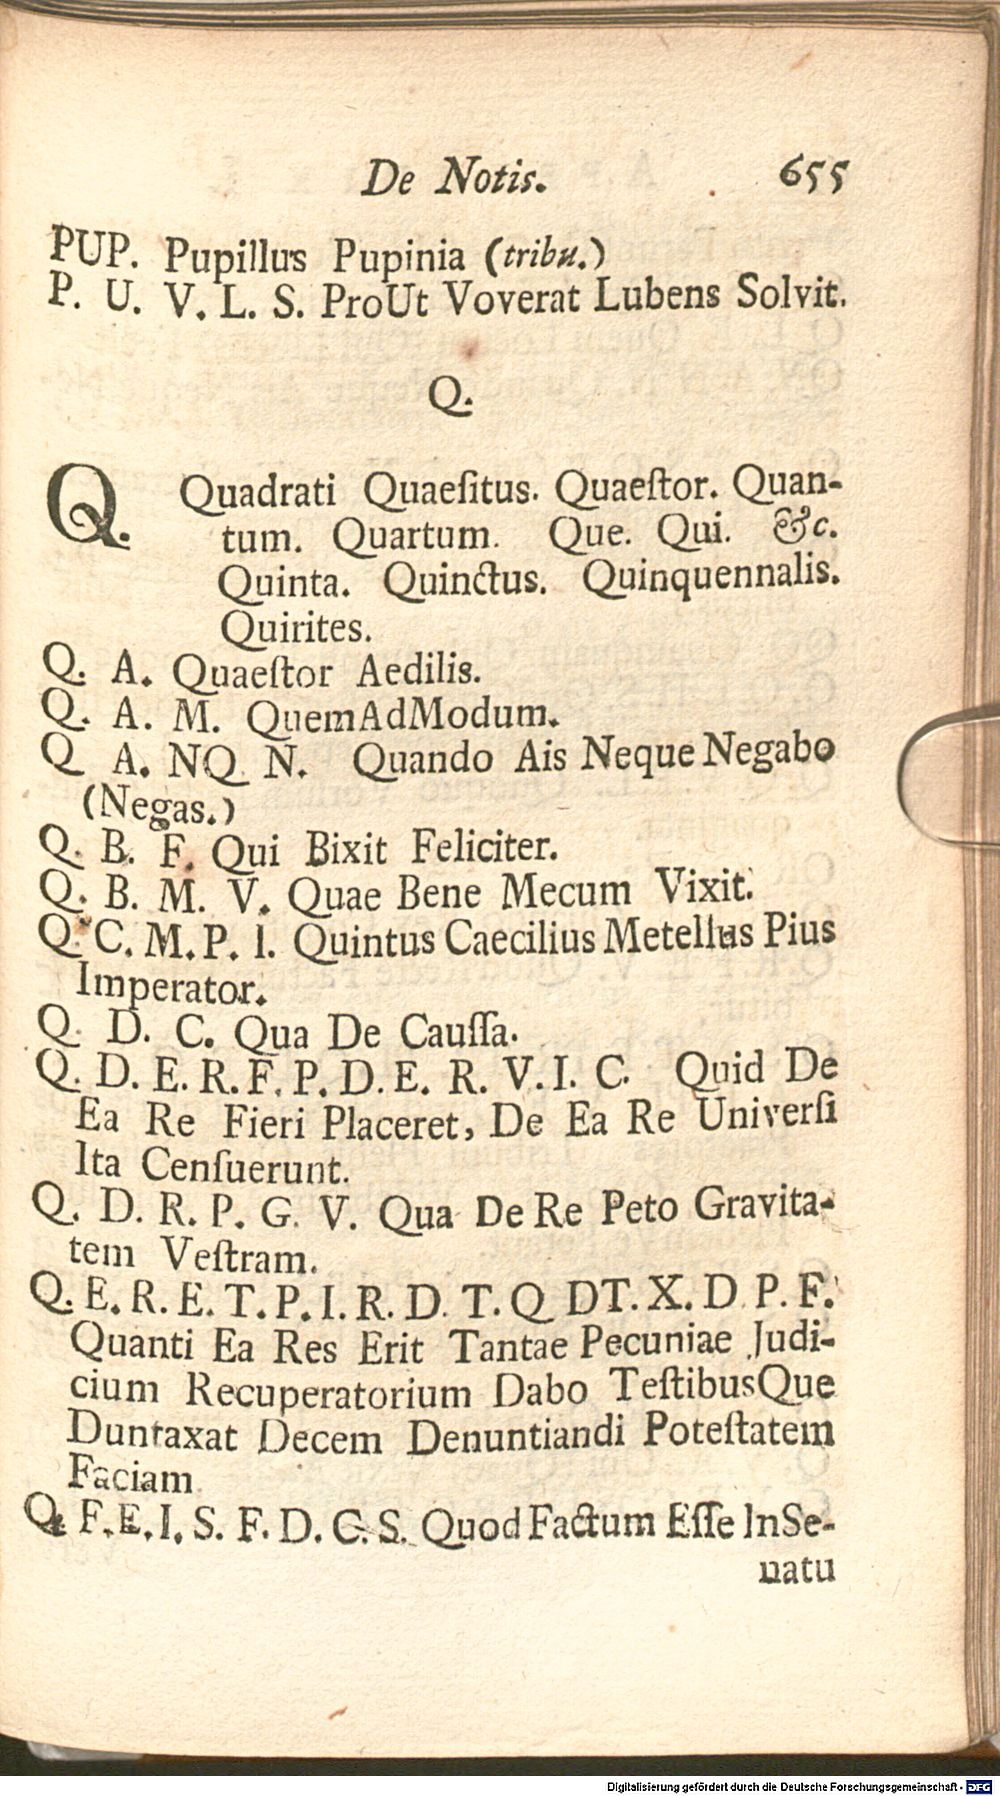 De Notis. 655
PUP. Pupillus Pupinia (tribu.)
P. U. V. L. S. ProUt Voverat Lubens Solvit.
Q.
Q. Quadrati Quaeſitus. Quaeſtor. Quan-
tum. Quartum. Que. Qui. &c.
Quinta. Quinctus. Quinquennalis.
Quirites.
Q. A. Quaeſtor Aedilis.
Q. A. M. QuemAdModum.
Q A. NQ. N. Quando Ais Neque Negabo
(Negas.)
Q. B. F. Qui Bixit Feliciter.
Q. B. M. V. Quae Bene Mecum Vixit.
Q. C. M. P. I. Quintus Caecilius Metellus Pius
Imperator.
Q. D. C. Qua De Cauſſa.
Q. D. E. R. F. P. D. E. R. V. I. C. Quid De
Ea Re Fieri Placeret, De Ea Re Univerſi
Ita Cenſuerunt.
Q. D. R. P. G. V. Qua De Re Peto Gravita-
tem Veſtram.
Q. E. R. E. T. P. I. R. D. T. Q DT. X. D. P. F.
Quanti Ea Res Erit Tantae Pecuniae Judi-
cium Recuperatorium Dabo TeſtibusQue
Duntaxat Decem Denuntiandi Poteſtatem
Faciam
Q. F. E. I. S. F. D. C. S. Quod Factum Eſſe InSe-
natu
Digitalisierung gefördert durch die Deutsche Forschungsgemeinschaft - DFG